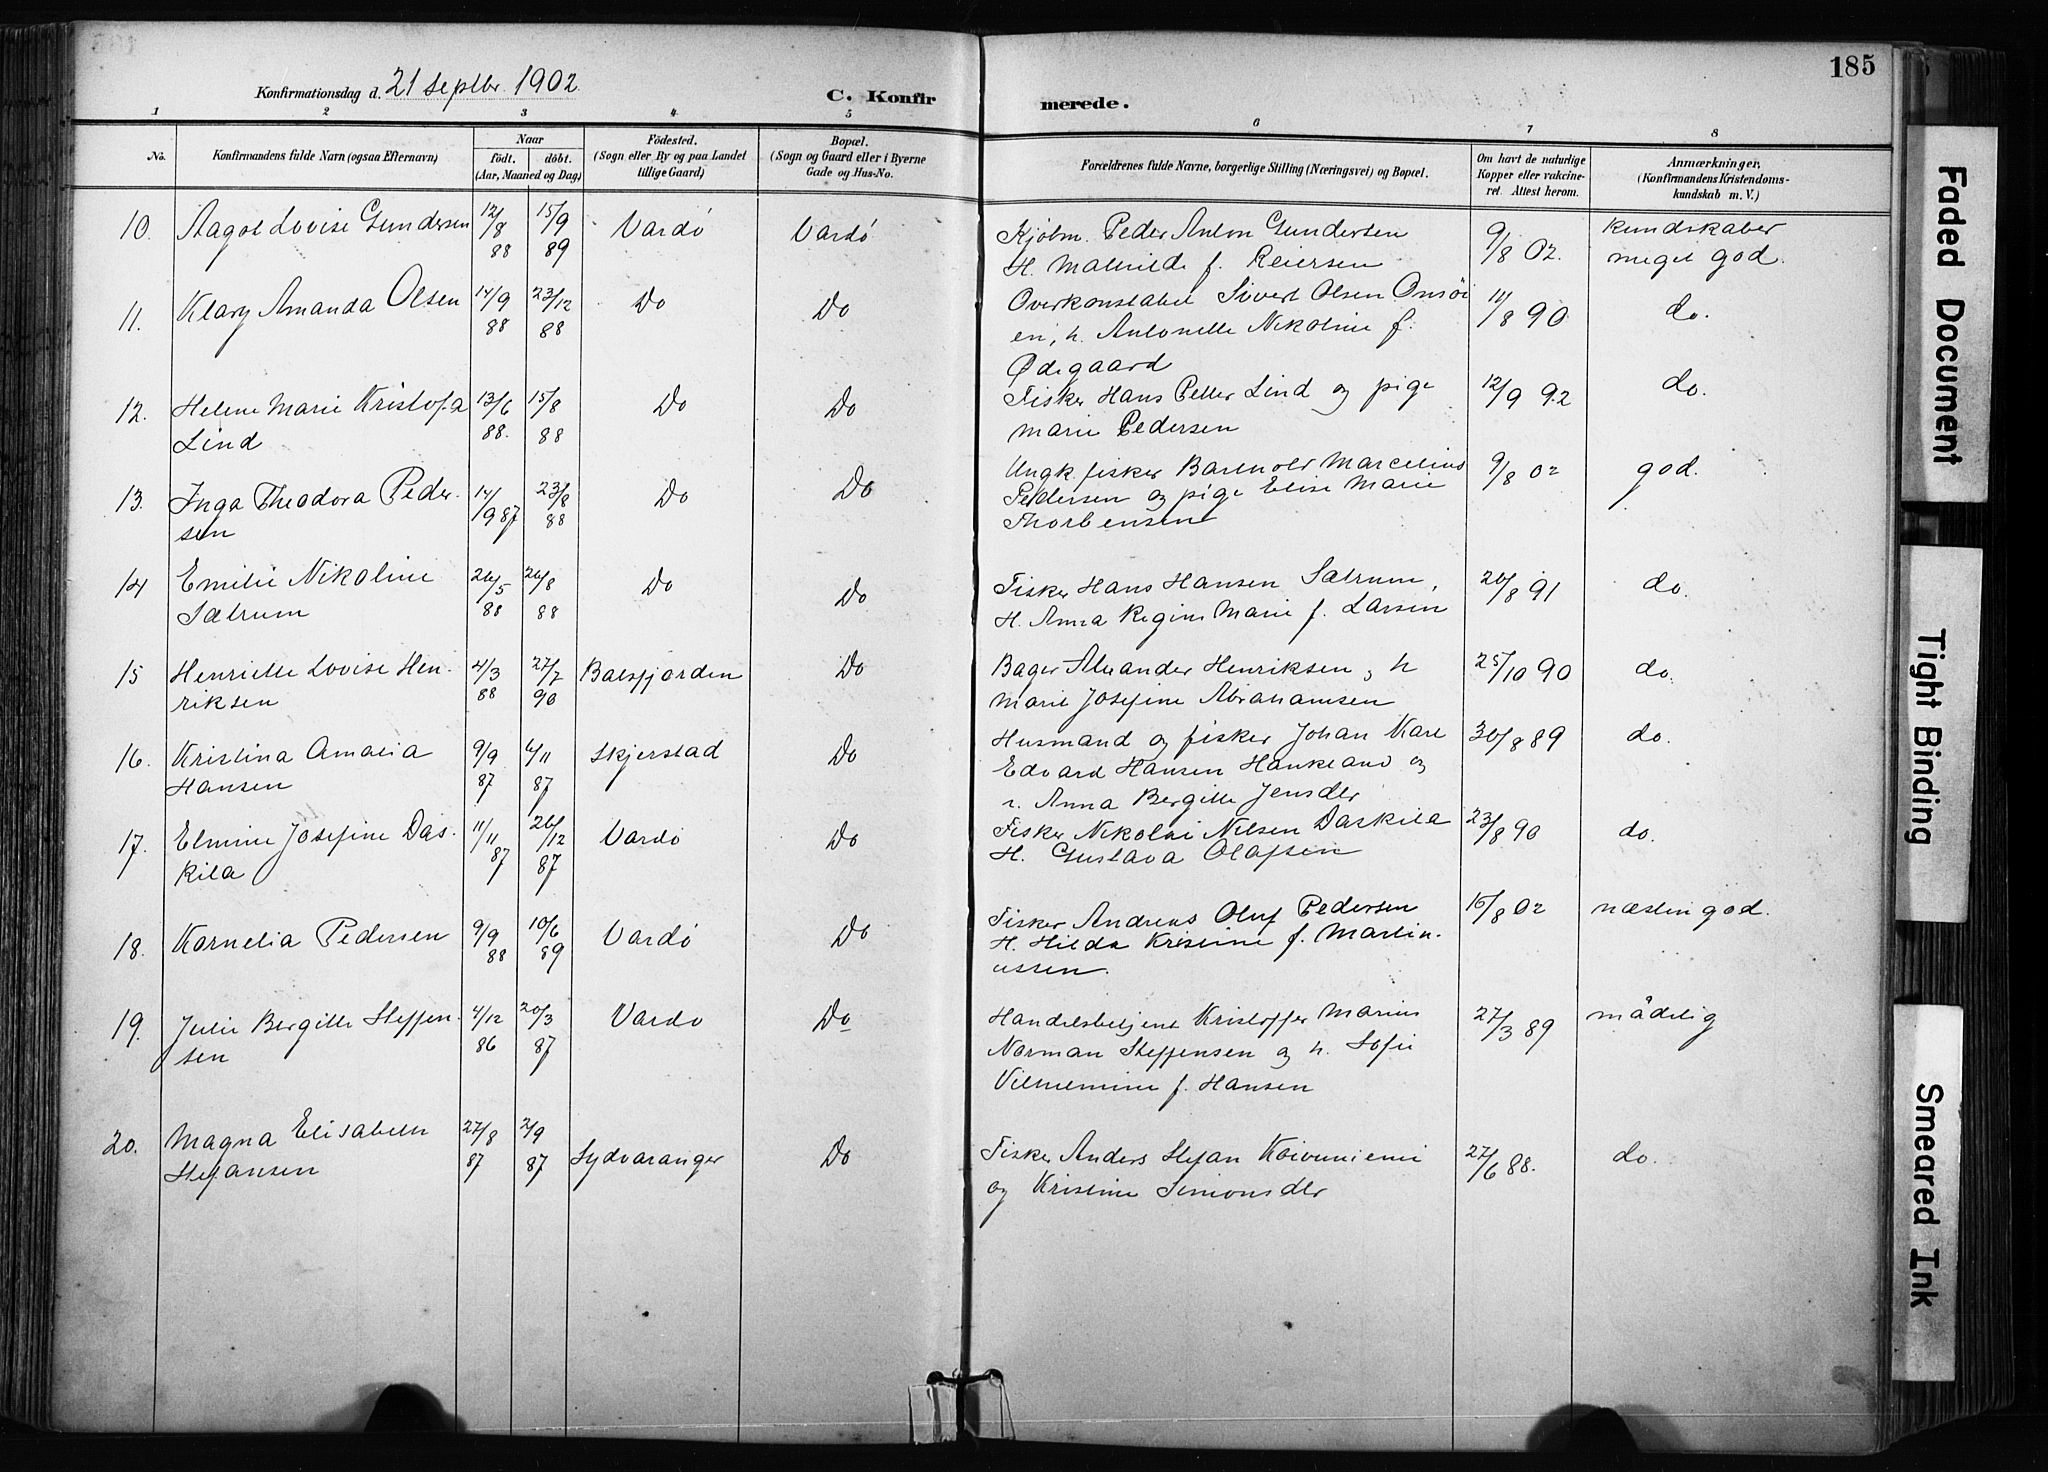 185
Konfirmationsdag d. 21 septbr 1902.
C. Konfirmerede.
1 2 3 4 5 6 7 8
No.
Konfirmandens fulde Navn (ogsaa Efternavn)
Naar
födt. döbt.
(Aar, Maaned og Dag)
Födested.
(Sogn eller By og paa Landet
tillige Gaard)
Bopæl.
(Sogn og Gaard eller i Byerne
Gade og Hus-No.
Forældrenes fulde Navne, borgerlige Stilling (Næringsvei) og Bopæl.
Om havt de naturlige
Kopper eller vakcine-
ret. Attest herom.
Anmærkninger,
(Konfirmandens Kristendoms-
kundskab m. V.)
10. Aagot Lovise Gundersen 12/8 88 15/9 89 Vardö Vardö Kjøbm. Peder Anton Gundersen 9/8 02. Kundskaber
H. Mathilde f. Reiersen meget god.
11. Klary Amanda Olsen 14/9 88 23/12 88 Do Do Overkonstabel Sivert Olsen Onsöi 14/8 90 do.
en, h. Antonette Nikoline f.
Ødegaard
12. Helene Marie Kristofa 13/6 88. 15/8 88 Do Do Fisker Hans Petter Lind og pige 12/9 92 do.
Lind Marie Pedersen
13. Inga Theodora Peder- 14/9 87 23/8 88 Do Do Ungk. fisker Barthold Marcelius 9/8 02 god.
sen Pedersen og pige Elise Marie
Thorbensen
14 Emilie Nikoline 26/5 88 26/8 88 Do Do Fisker Hans Hansen Sætrum, 20/8 91 do.
Sætrum H. Anna Regine Marie f. Larsen
15 Henriette Lovise Hen- 4/3 88 27/7 90 Balsfjorden Do Bager Alexander Henriksen, h 25/10 90 do.
riksen Marie Josefine Abrahamsen
16. Kristina Amalia 9/9 87 6/11 87 Skjerstad Do Husmand og fisker Johan Karl 30/8 89 do.
Hansen Edvard Hansen Haukeland og
h. Anna Bergitte Jensdtr
17. Elmine Josefine Das- 11/11 87 26/12 87 Vardö Do Fisker Nikolai Nilsen Daskila 23/8 90 do.
kila H. Gustava Olafsen
18. Kornelia Pedersen 9/9 88 10/6 89 Vardö Do Fisker Andreas Oluf Pedersen 16/8 02 næsten god.
H. Hilda Kristine f. Martin-
ussen.
19. Julie Bergitte Steffen- 4/12 86 20/3 87 Vardö Do Handelsbetjent Kristoffer Marius 27/3 89 mådelig
sen Norman Steffensen og h. Sofie
Vilhelmine f. Hansen
20. Magna Elisabeth 27/8 87 2/9 87 Sydvaranger Do Fisker Anders Stefan Koivuniemi 27/6 88. do.
Stefansen og Kristine Simonsdtr
Faded Document
Tight Binding
Smeared Ink